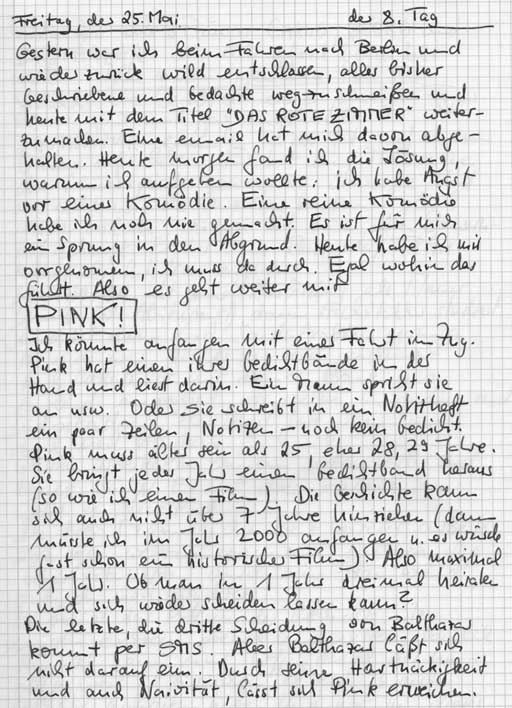 Freitag, der 25. Mai der 8. Tag
Gestern war ich beim Fahren nach Berlin und
wieder zurück wild entschlossen, alles bisher
Geschriebene und bedachte wegzuschmeißen und
heute mit dem Titel "DAS ROTE ZIMMER" weiter-
zumachen. Eine email hat mich davon abge-
halten. Heute morgen fand ich die Lösung,
warum ich aufgeben wollte: ich habe Angst
vor einer Komödie. Eine reine Komödie
habe ich noch nie gemacht. Es ist für mich
ein Sprung in den Abgrund. Heute habe ich mir
vorgenommen, ich muss da durch. Egal wohin das
führt. Also es geht weiter mit
PINK!
Ich könnte anfangen mit einer Fahrt im Zug.
Pink hat einen ihrer Gedichtbände in der
Hand und liest darin. Ein Mann spricht sie
an usw. Oder sie schreibt in ein Notizheft
ein paar Zeilen, Notizen – noch kein Gedicht.
Pink muss älter sein als 25, eher 28, 29 Jahre.
Sie bringt jedes Jahr einen Gedichtband heraus
(so wie ich einen Film). Die Geschichte kann
sich auch nicht über 7 Jahre hinziehen (dann
müsste ich im Jahr 2000 anfangen u. es würde
fast schon ein historischer Film). Also maximal
1 Jahr. Ob man in 1 Jahr dreimal heiraten
und sich wieder scheiden lassen kann?
Die letzte, die dritte Scheidung von Balthazar
kommt per SMS. Aber Balthazar läßt sich
nicht darauf ein. Durch seine Hartnäckigkeit
und auch Naivität, lässt sich Pink erweichen.